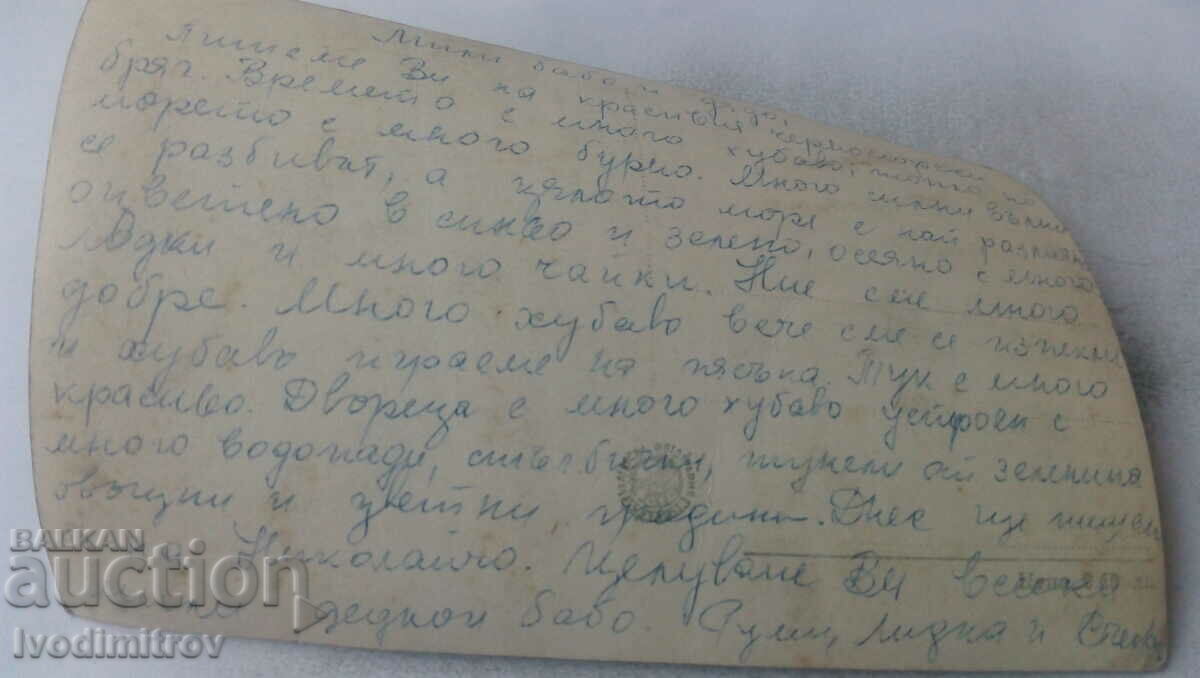 Мили бабо и дядо,
Пишеме Ви на красивия черноморски
бряг. Времето е много хубаво,
морето е много бурно. Много силни вълни
се разбиват, а цялото море е най
оцветено в синьо и зелено, осеяно с много
Лодки и много чайки. Ние сме много
добре. Много хубаво вече сме се изпекли
и хубаво играеме на пясъка. Тук е много
красиво. Двореца е много хубаво устроен с
много водопади, стълбички, тунели от зеленина
овощни и цветни градини. Днес ще пишем
и Николайчо. Целуваме Ви всички
дядкои бабо. Руми, Лидка и
BALKAN
auction
Ivodimitrov